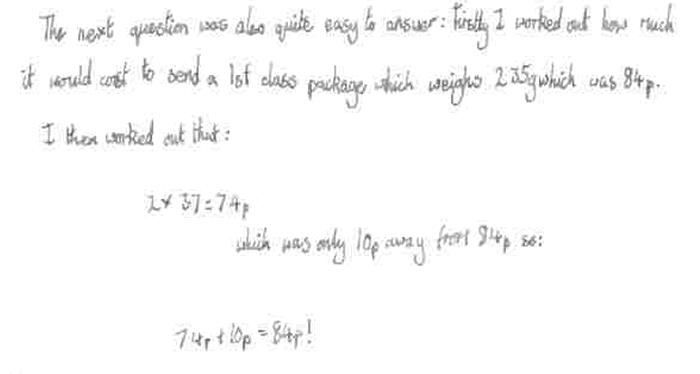 The next question was also quite easy to answer: firstly I worked out how much
it would cost to send a 1st class package which weighs 235g which was 84p.
I then worked out that:
2 × 37 = 74p
which was only 10p away from 84p so:
74p + 10p = 84p!